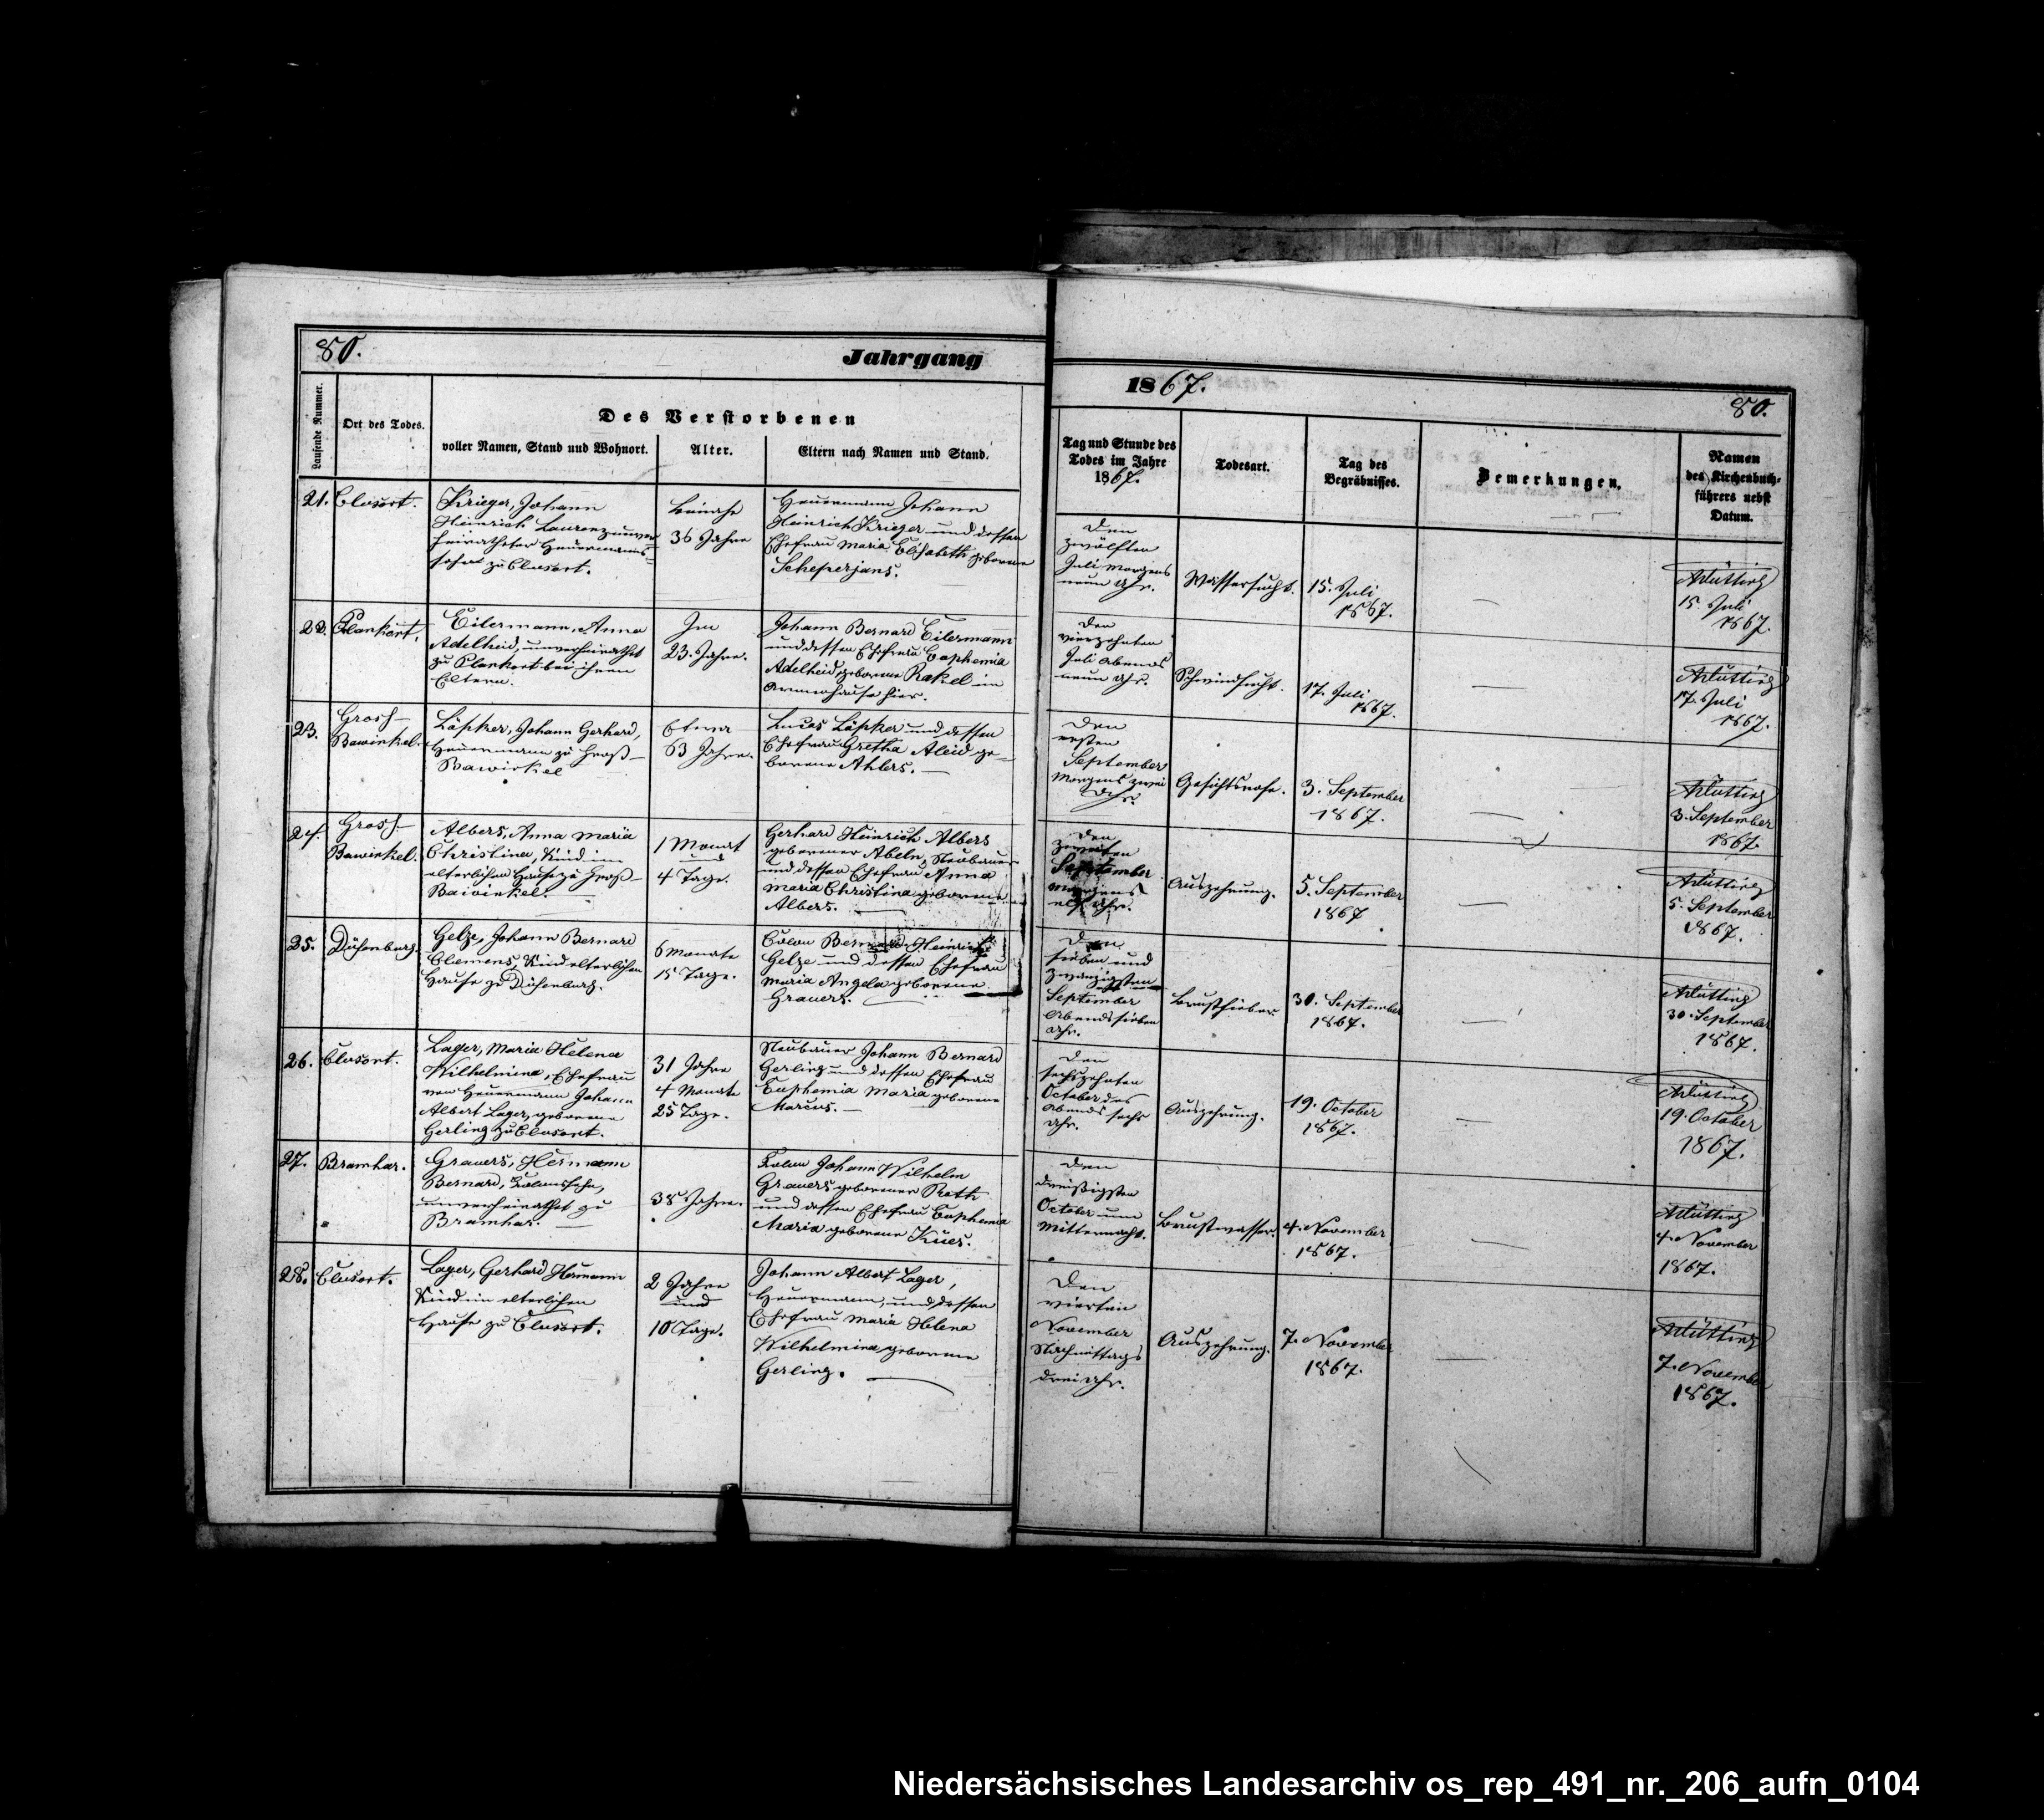 80.
Jahrgang
1867.
80.
Laufende Nummer.
Ort des Todes.
Des Verstorbenen
voller Namen, Stand und Wohnort.
Alter.
Eltern nach Namen und Stand.
Tag und Stunde des
Todes im Jahre
1867.
Todesart.
Tag des
Begräbnisses.
Bemerkungen.
Namen
des Kirchenbuch-
führers nebst
Datum.
21. Clusort.
Krieger, Johann
Heinrich Laurenz unver-
heiratheter Heuermanns-
sohn zu Clusort.
Beinahe
36 Jahre
Heuermann Johann
Heinrich Krieger und dessen
Ehefrau Maria Elisabeth geborene
Scheperjans.
Den
zwölften
Juli Morgens
neun Uhr.
Wassersucht.
15. Juli
1867.
—
15. Juli
1867.
22. Plankort.
Eilermann, Anna
Adelheid, unverheirathet
zu Plankort bei ihren
Eltern.
Im
23. Jahre.
Johann Bernard Eilermann
und dessen Ehefrau Euphemia
Adelheid, geborene Rakel im
Armenhause hier.
Den
vierzehnten
Juli Abends
neun Uhr.
Schwindsucht.
17. Juli
1867.
—
17. Juli
1867.
23.
Gross-
Bawinkel.
Läpker, Johann Gerhard,
Heuermann zu Groß-
Bawinkel
Etwa
63 Jahre.
Lucas Läpker und dessen
Ehefrau Gretha Aleid ge-
borene Ahlers. —
Den
ersten
September
Morgens zwei
Uhr.
Gesichtsrose.
3. September
1867.
—
3. September
1867.
24.
Gross-
Bawinkel.
Albers, Anna Maria
Christina, Kind im
elterlichen Hause zu Groß-
Bawinkel.
1 Monat
und
4 Tage.
Gerhard Heinrich Albers
geborener Abeln, Neubauer
und dessen Ehefrau Anna
Maria Christina geborene
Albers. —
Den
zweiten
September
Morgens
elf Uhr.
Auszehrung.
5. September
1867
—
5. September
1867.
25. Düsenburg.
Gelze, Johann Bernard
Clemens, Kind elterlichen
Hause zu Düsenburg.
6 Monate
15 Tage.
Colon Bernard Heinrich
Gelze und dessen Ehefrau
Maria Angela geborene
Gravers. —
Den
sieben und
zwanzigsten
September
Abends sieben
Uhr.
Brustfieber
30. September
1867.
—
30. September
1867.
26. Clusort.
Lager, Maria Helena
Wilhelmina, Ehefrau
von Heuermann Johann
Albert Lager, geborene
Gerling zu Clusort.
31 Jahre
4 Monate
25 Tage.
Neubauer Johann Bernard
Gerling und dessen Ehefrau
Euphemia Maria geborene
Marcus. —
Den
sechszehnten
October des
Abends sechs
Uhr.
Auszehrung.
19. October
1867.
—
19. October
1867.
27. Bramhar.
Gravers, Hermann
Bernard, Kolonssohn,
unverheirathet zu
Bramhar. —
38 Jahre.
Kolon Johann Wilhelm
Gravers geborener Roth
und dessen Ehefrau Euphemia
Maria geborene Kues.
Den
dreißigsten
October um
Mitternacht.
Brustwasser.
4. November
1867.
—
4. November
1867.
28. Clusort.
Lager, Gerhard Hermann
Kind im elterlichen
Hause zu Clusort.
2 Jahre
und
10 Tage.
Johann Albert Lager,
Heuermann, und dessen
Ehefrau Maria Helena
Wilhelmina geborene
Gerling. —
Den
vierten
November
Nachmittags
drei Uhr.
Auszehrung.
7. November
1867.
—
7. November
1867.
Niedersächsisches Landesarchiv os_rep_491_nr._206_aufn_0104